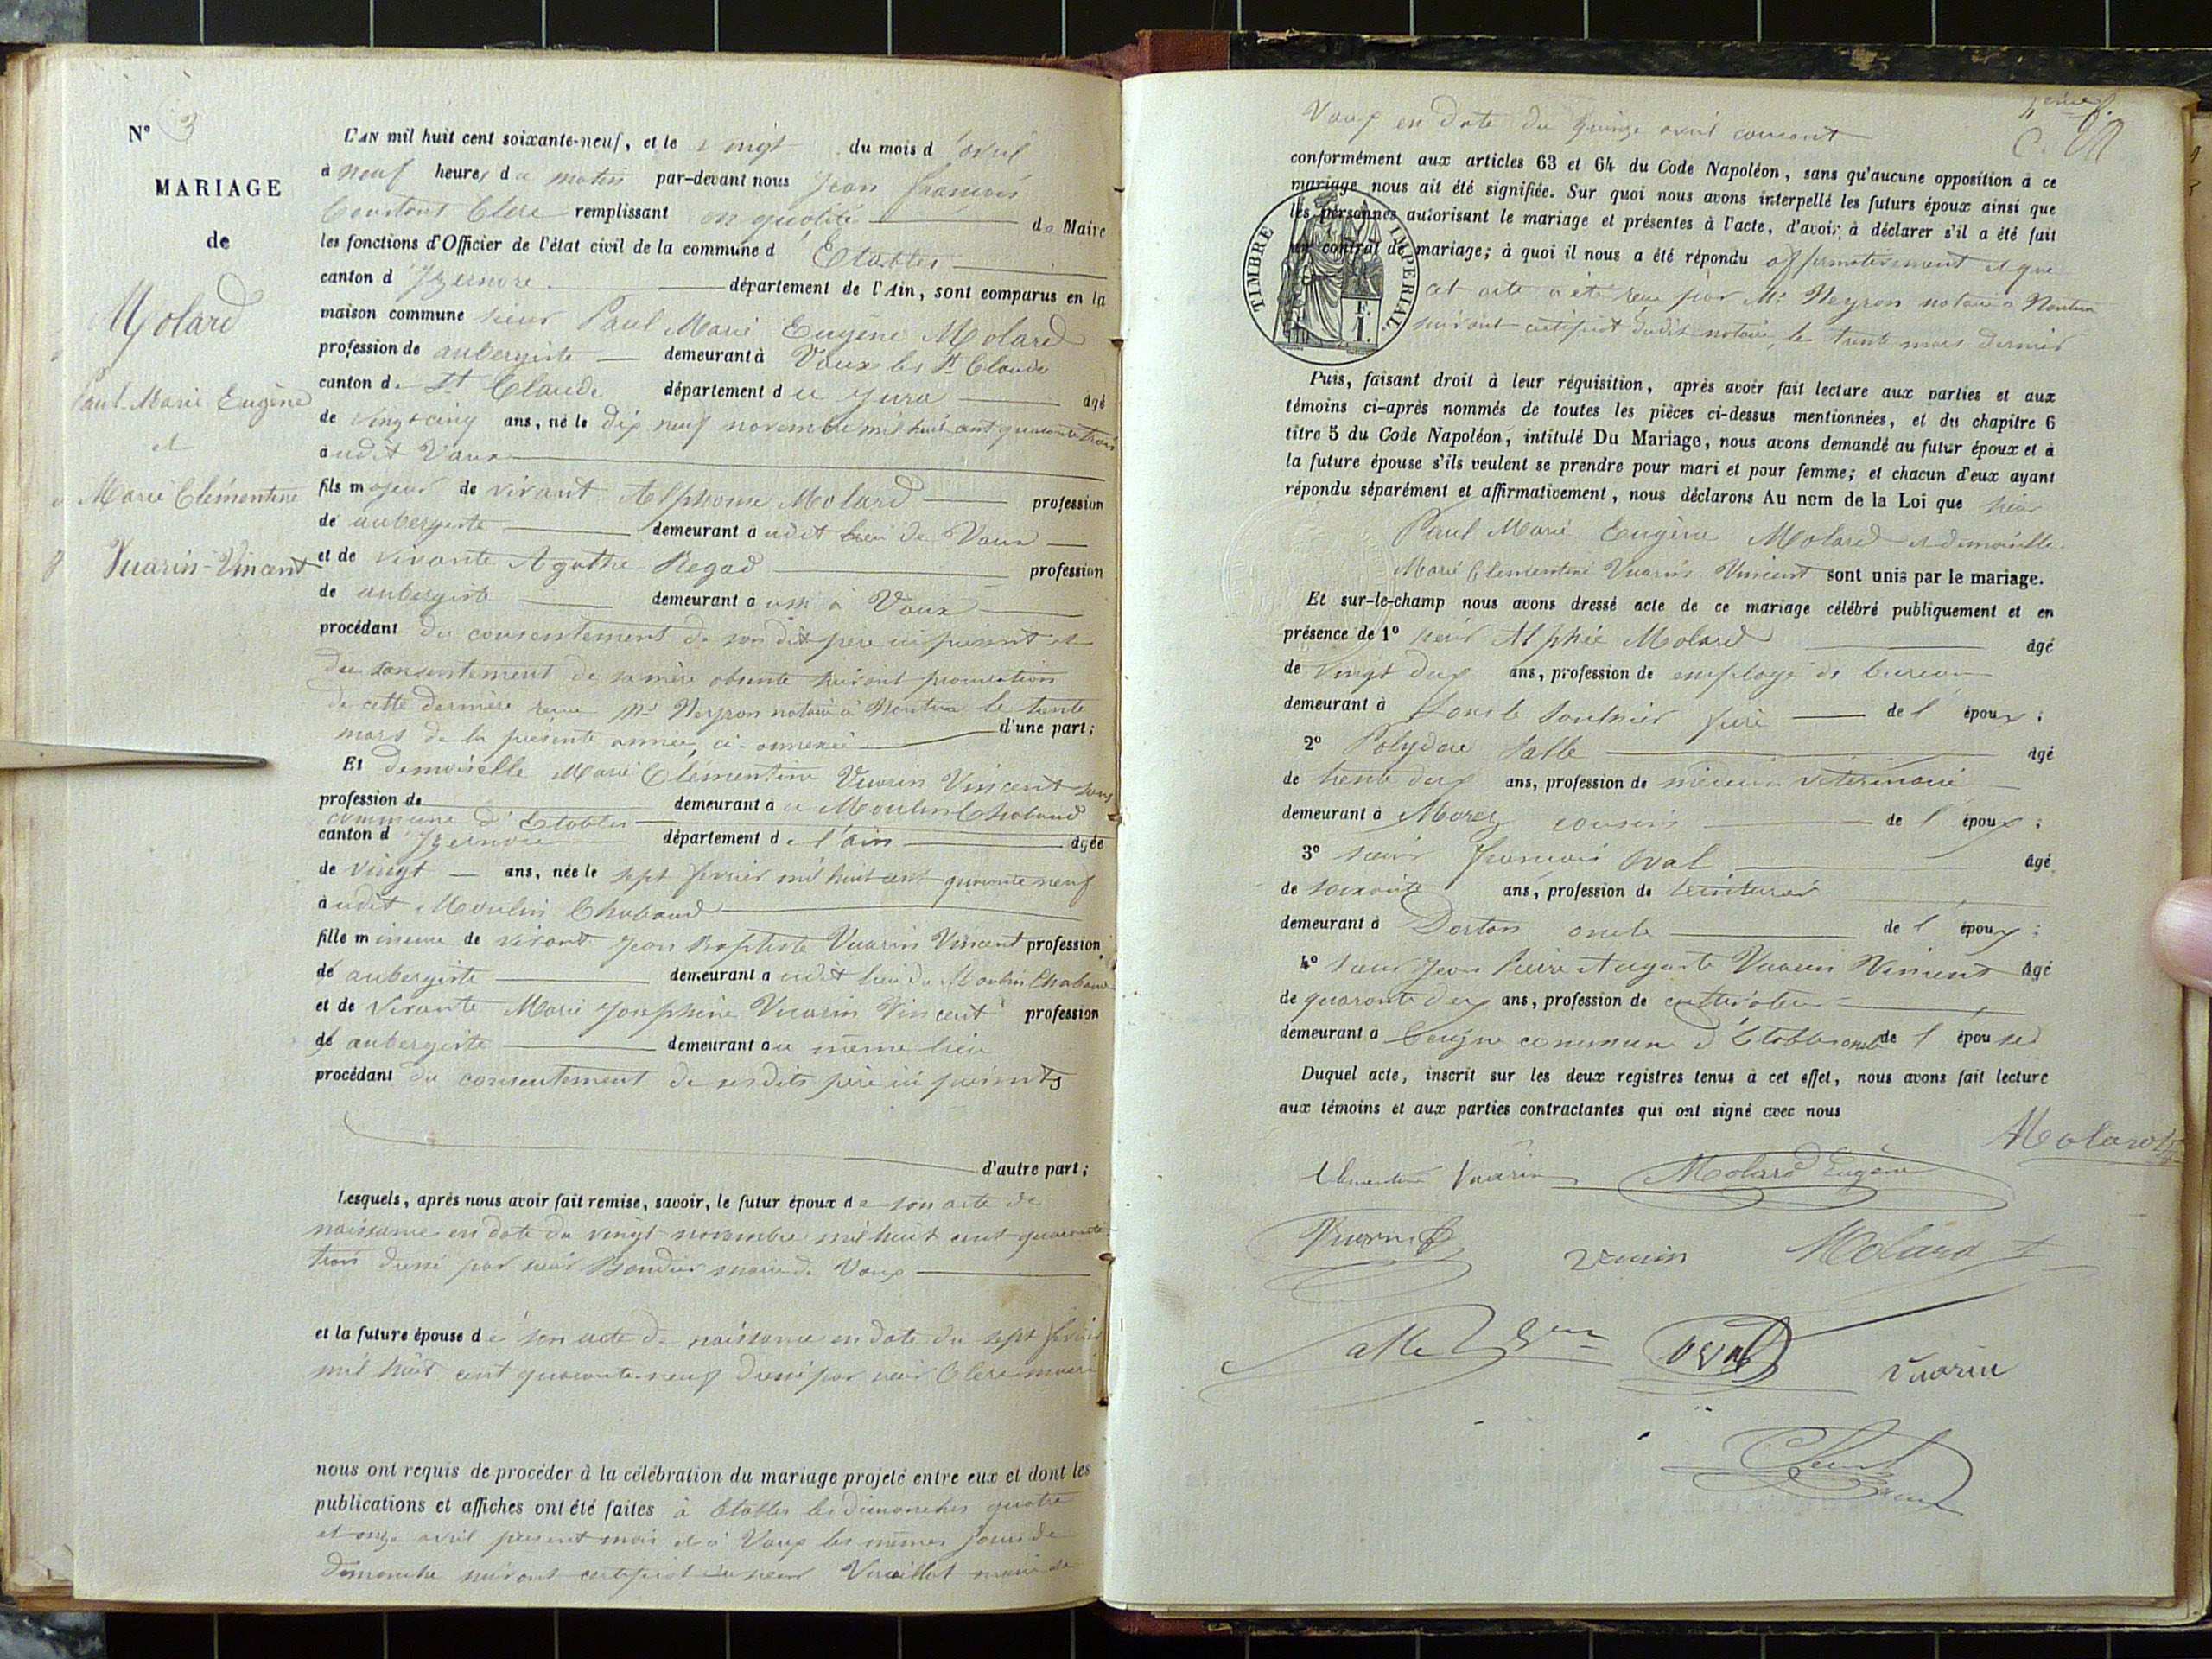 N° 3
MARIAGE
de
Molard
Paul-Marie Eugène
et
Marie Clémentine
Vuarin-Vincent
L'AN mil huit cent soixante-neuf, et le vingt du mois d'avril
à neuf heures du matin par-devant nous Jean françois
Constant Clerc remplissant en qualité de Maire
les fonctions d'Officier de l'état civil de la commune d'Etables
canton d'Izernore département de l'Ain, sont comparus en la
maison commune sieur Paul Marie Eugène Molard
profession de aubergiste demeurant à Vaux les St Claude
canton de St Claude département du Jura âgé
de vingt cinq ans, né le dix neuf novembre mil huit cent quarante trois
audit Vaux
fils majeur de vivant Alphonse Molard profession
de aubergiste demeurant audit lieu de Vaux
et de vivante Agathe Regad profession
de aubergiste demeurant aussi à Vaux
procédant du consentement de son dit père ici présent et
du consentement de sa mère absente suivant procuration
de cette dernière reçue Me Neyron notaire à Nantua le trente
mars de la présente année, ci-annexée d'une part;
Et demoiselle Marie Clémentine Vuarin Vincent sans
profession de demeurant au Moulin Chabaud
commune d'Etables
canton d'Izernore département de l'ain âgée
de vingt ans, née le sept février mil huit cent quarante neuf
audit Moulin Chabaud
fille mineure de vivant Jean Baptiste Vuarin Vincent profession
de aubergiste demeurant audit lieu du Moulin Chabaud
et de vivante Marie Joséphine Vuarin Vincent profession
de aubergiste demeurant au même lieu
procédant du consentement de sesdits père ici présents
d'autre part;
Lesquels, après nous avoir fait remise, savoir, le futur époux de son acte de
naissance en date du vingt novembre mil huit cent quarante
trois dressé par sieur Bondier maire de Vaux
et la future épouse de son acte de naissance en date du sept février
mil huit cent quarante-neuf dressé par sieur Clerc maire
nous ont requis de procéder à la célébration du mariage projeté entre eux et dont les
publications et affiches ont été faites à Etables les dimanches quatre
et onze avril présent mois et à Vaux les mêmes jours de
dimanche suivant certificat du sieur Vuaillat maire de
4ème f.
Vaux en date du quinze avril courant
conformément aux articles 63 et 64 du Code Napoléon, sans qu'aucune opposition à ce
mariage nous ait été signifiée. Sur quoi nous avons interpellé les futurs époux ainsi que
les personnes autorisant le mariage et présentes à l'acte, d'avoir à déclarer s'il a été fait
un contrat de mariage; à quoi il nous a été répondu affirmativement et que
cet acte a été reçu par Me Neyron notaire à Nantua
suivant certificat dudit notaire, le trente mars dernier
TIMBRE IMPERIAL.
1 F.
Puis, faisant droit à leur réquisition, après avoir fait lecture aux parties et aux
témoins ci-après nommés de toutes les pièces ci-dessus mentionnées, et du chapitre 6
titre 5 du Code Napoléon, intitulé Du Mariage, nous avons demandé au futur époux et à
la future épouse s'ils veulent se prendre pour mari et pour femme; et chacun d'eux ayant
répondu séparément et affirmativement, nous déclarons Au nom de la Loi que sieur
Paul Marie Eugène Molard et demoiselle
Marie Clémentine Vuarin Vincent sont unis par le mariage.
Et sur-le-champ nous avons dressé acte de ce mariage célébré publiquement et en
présence de 1° sieur Alphée Molard âgé
de vingt deux ans, profession de employé de bureau
demeurant à Lons le Saulnier frère de l'époux;
2° Polydore Salle âgé
de trente deux ans, profession de médecin vétérinaire
demeurant à Morez cousin de l'époux;
3° sieur françois Oval âgé
de soixante ans, profession de teinturier
demeurant à Dortan oncle de l'époux;
4° sieur Jean Pierre Auguste Vuarin Vincent âgé
de quarante deux ans, profession de cultivateur
demeurant à Ceigne commune d'Etables oncle de l'épouse
Duquel acte, inscrit sur les deux registres tenus à cet effet, nous avons fait lecture
aux témoins et aux parties contractantes qui ont signé avec nous
Molard
Clémentine Vuarin Molard Eugène
Vuarin Molard
Salle Oval Vuarin
Clerc